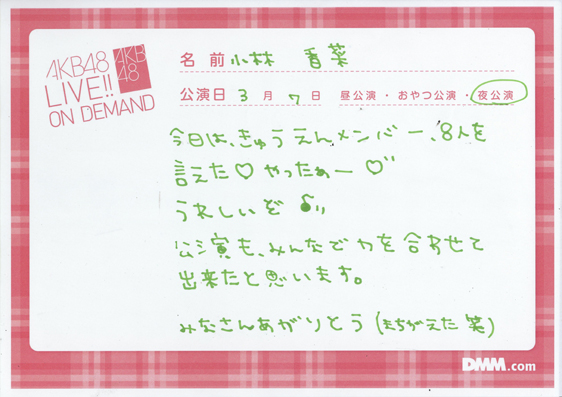 AKB48
LIVE!!
ON DEMAND
AKB
48
名前 小林 香菜
公演日 3月7日 昼公演・おやつ公演・夜公演
今日は、きゅうえんメンバー、8人を
言えた♡ やったぁー♡”
うれしいぞ♪,,
公演も、みんなで力を合わせて
出来たと思います。
みなさんあがりとう(まちがえた 笑)
DMM.com